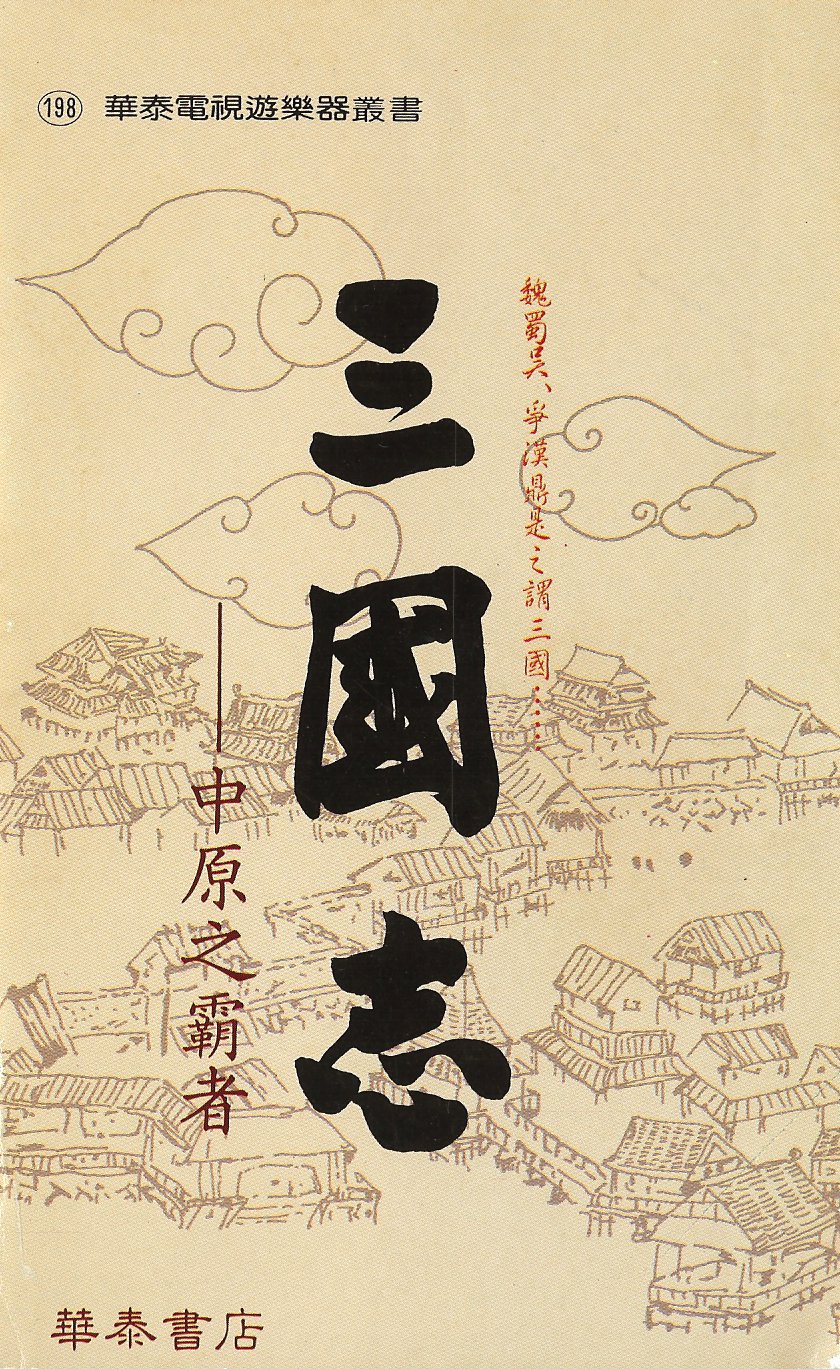 198 華泰電視遊樂器叢書
魏蜀吳、爭漢鼎是之謂三國……
三國志
——中原之霸者
華泰書店